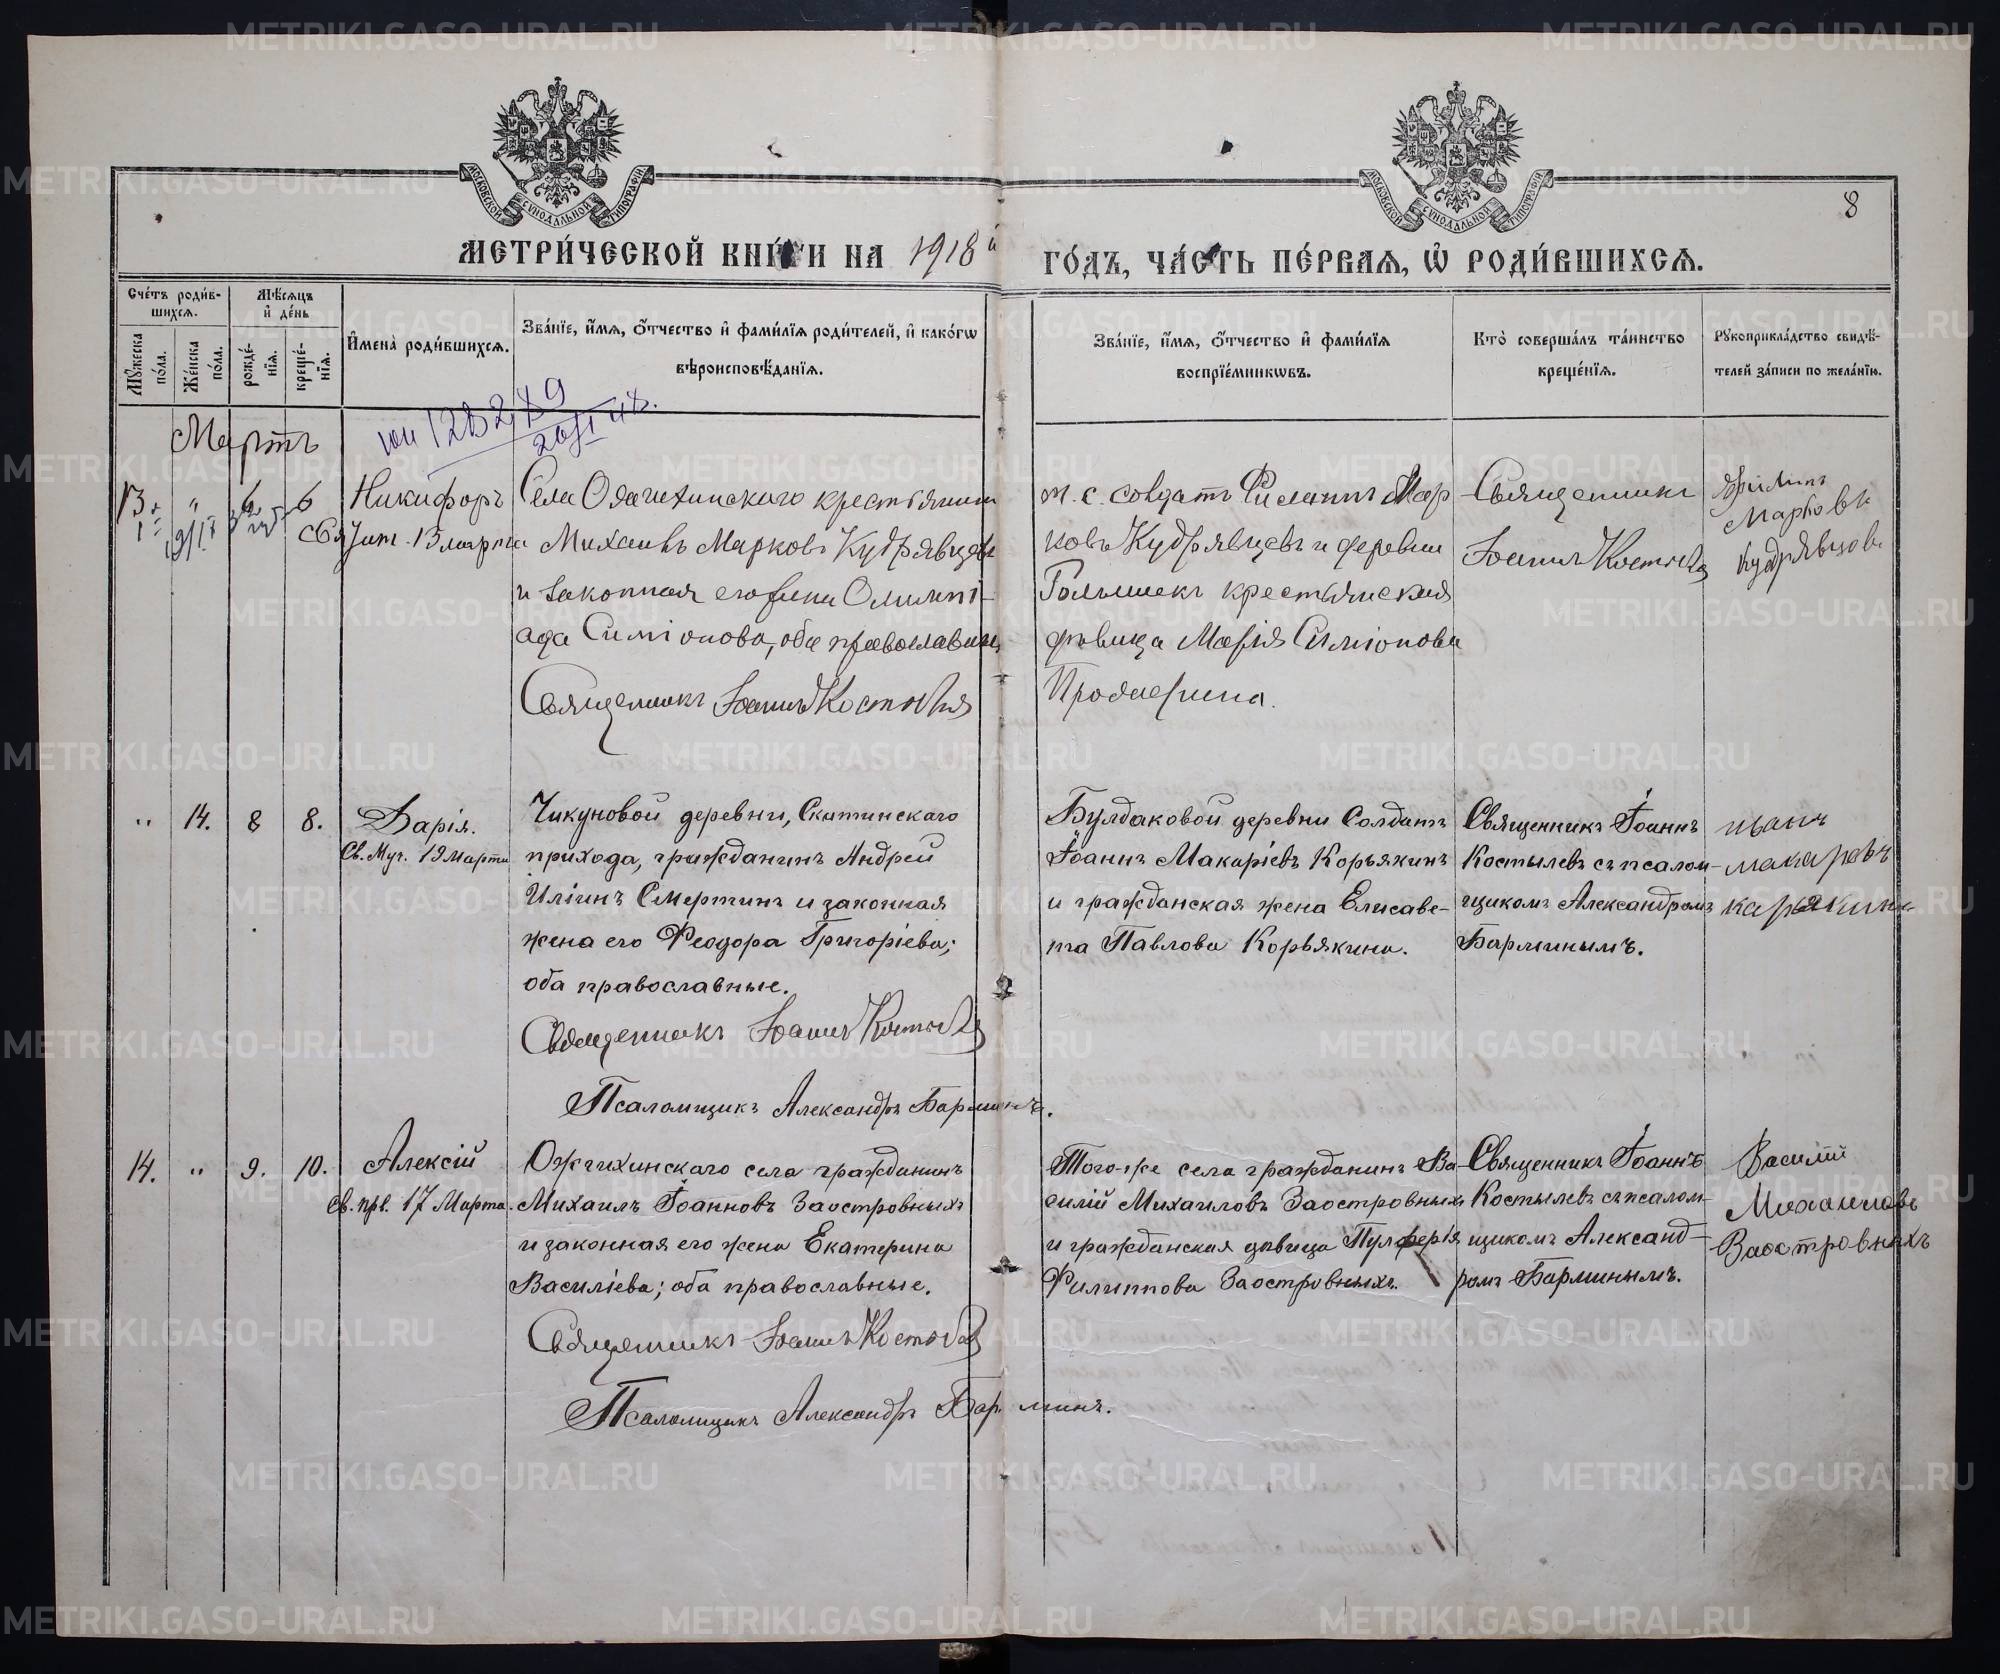 МОСКОВСКОЙ СѴНОДАЛЬНОЙ ТИПОГРАФІИ
МОСКОВСКОЙ СѴНОДАЛЬНОЙ ТИПОГРАФІИ
8
МЕТРИ́ЧЕСКОЙ КНИ́ГИ НА 1918 й ГО́ДЪ, ЧА́СТЬ ПЕ́РВАѦ, Ѡ҆ РОДИ́ВШИХСѦ.
Сче́тъ роди́в-
шихсѧ.
Мꙋ́жеска по́ла.
Же́нска по́ла.
Мѣ́сѧцъ и҆ де́нь
рожде́-нїѧ.
креще́-нїѧ.
И҆мена̀ роди́вшихсѧ.
Зва́нїе, и҆́мѧ, ѻ҆́тчество и҆ фами́лїѧ роди́телей, и҆ како́гѡ
вѣроисповѣ́данїѧ.
Зва́нїе, и҆́мѧ, ѻ҆́тчество и҆ фами́лїѧ
воспрїе́мникѡвъ.
Кто̀ соверша́лъ та́инство
креще́нїѧ.
Рꙋкоприкла́дство свидѣ́-
телей за́писи по жела́нїю.
Мартъ
13 " 6 6
Никифоръ
Свят. 13 марта
Села
крестьянин
Михаилъ Марковъ Кудрявцевъ
и законная его жена Олимпі-
ада Симіонова, оба православны
Священникъ Іоаннъ Костылевъ
т. с. солдатъ Филиппъ Мар
ковъ Кудрявцевъ и деревни
крестьянская
дѣвица Марія Симіонова
Священникъ
Іоаннъ Костылевъ
Марковъ
Кудрявцовъ
" 14. 8 8.
Дарія.
Св. Муч. 19 Марта
Чикуновой деревни, Скатинскаго
прихода, гражданинъ Андрей
Иліинъ Смертинъ и законная
жена его Феодора Григоріева;
оба православные.
Священникъ Іоаннъ Костылевъ
Псаломщикъ Александръ Барминъ.
Булдаковой деревни Солдатъ
Іоаннъ Макаріевъ Корьякинъ
и гражданская жена Елисаве-
та Павлова Корьякина.
Священникъ Іоаннъ
Костылевъ съ псалом-
щикомъ Александромъ
Барминымъ.
иванъ
макаровъ
карякинъ
14. " 9. 10.
Алексій
Св. прв. 17 Марта.
Ожгихинскаго села гражданинъ
Михаилъ Іоанновъ Заостровныхъ
и законная его жена Екатерина
Василіева; оба православные.
Священникъ Іоаннъ Костылевъ
Псаломщикъ Александръ Барминъ.
Того-же села гражданинъ Ва-
силій Михаиловъ Заостровныхъ
и гражданская дѣвица Пулферія
Филиппова Заостровныхъ.
Священникъ Іоаннъ
Костылевъ съ псалом-
щикомъ Александ-
ромъ Барминымъ.
Василий
Михаиловъ
Заостровныхъ
METRIKI.GASO-URAL.RU